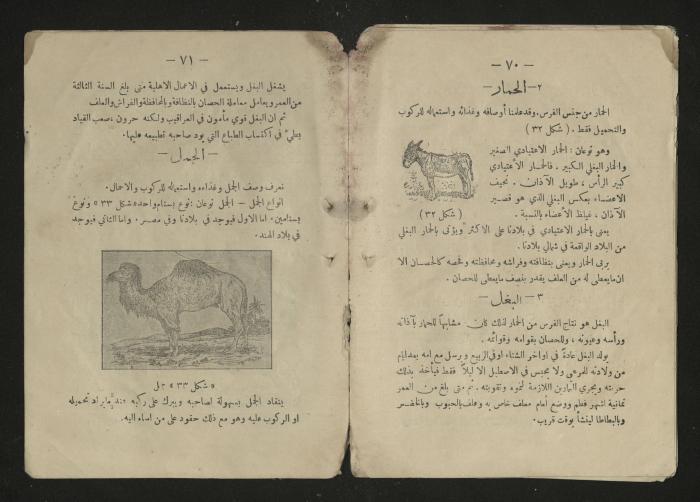 — ٧٠ —
٢- الحمار —
الحمار من جنس الفرس. وقد علمنا أوصافه وغذائه واستعماله للركوب
والتحميل فقط. ( شكل ٣٢ )
وهو نوعان : الحمار الاعتيادي الصغير
والحمار البغلي الكبير . فالحمار الاعتيادي
كبير الرأس ، طويل الآذان . نحيف
الاعضاء بعكس البغلي الذي هو قصير
الآذان ، غليظ الأعضاء بالنسبة .
( شكل ٣٢ )
يعنى بالحمار الاعتيادي في بلادنا على الاكثر ويؤتى بالحمار البغلي
من البلاد الواقعة في شمالي بلادنا .
يربى الحمار ويعنى بنظافته وفراشه ومحافظته وفحصه كالحصان الا
ان ما يعطى له من العلف يقدر بنصف ما يعطى للحصان .
٣ - البغل —
البغل هو نتاج الفرس من الحمار لذلك كان مشابهاً للحمار بآذانه
ورأسه وعيونه ، وللحصان بقوامه وقوائمه .
يولد البغل عادة في اواخر الشتاء او في الربيع و يرسل مع امه بعد ايام
من ولادته للمرعى ولا يحبس في الاصطبل الا ليلاً فقط فيأخذ بذلك
حريته ويجري التمارين اللازمة لنموه وتقويته . ثم متى بلغ من العمر
ثمانية اشهر فطم ووضع أمام معلف خاص به وعلف بالحبوب وبالخضر
وبالبطاطا لينشأ بوقت قريب .
— ٧١ —
يشغل البغل ويستعمل في الاعمال الاهلية متى بلغ السنة الثالثة
من العمر ويعامل معاملة الحصان بالنظافة وبالمحافظة والفراش والعلف
ثم ان البغل قوي مأمون في العراقيب ولكنه حرون ، صعب القياد
بطيء في اكتساب الطباع التي يود صاحبه تطبيعه عليها .
— الجمل —
نعرف وصف الجمل وغذاءه واستعماله للركوب والاعمال .
انواع الجمل – الجمل نوعان : نوع بسنام واحد «شكل ٣٣» ونوع
بسنامين . اما الاول فيوجد في بلادنا وفي مصر . واما الثاني فيوجد
في بلاد الهند .
«شكل ٣٣» جمل
ينقاد الجمل بسهولة لصاحبه ويبرك على ركبه عند ما يراد تحميله
او الركوب عليه وهو مع ذلك حقود على من اساء اليه .